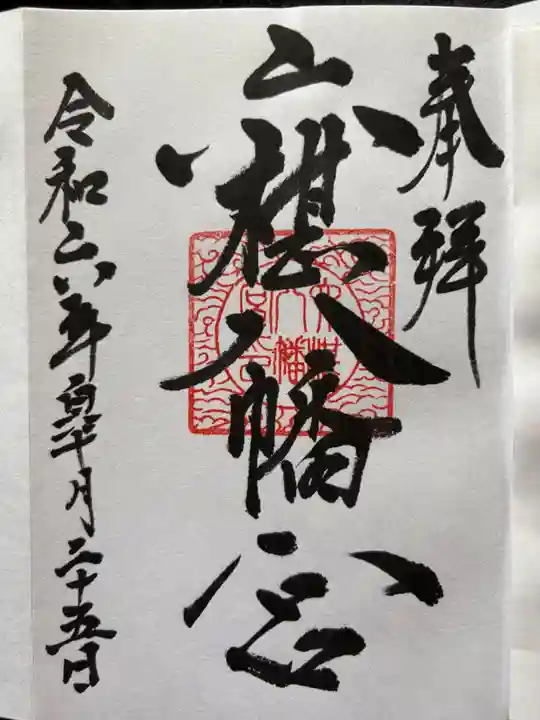 奉拝
六椹八幡宮
令和六年皐月二十五日